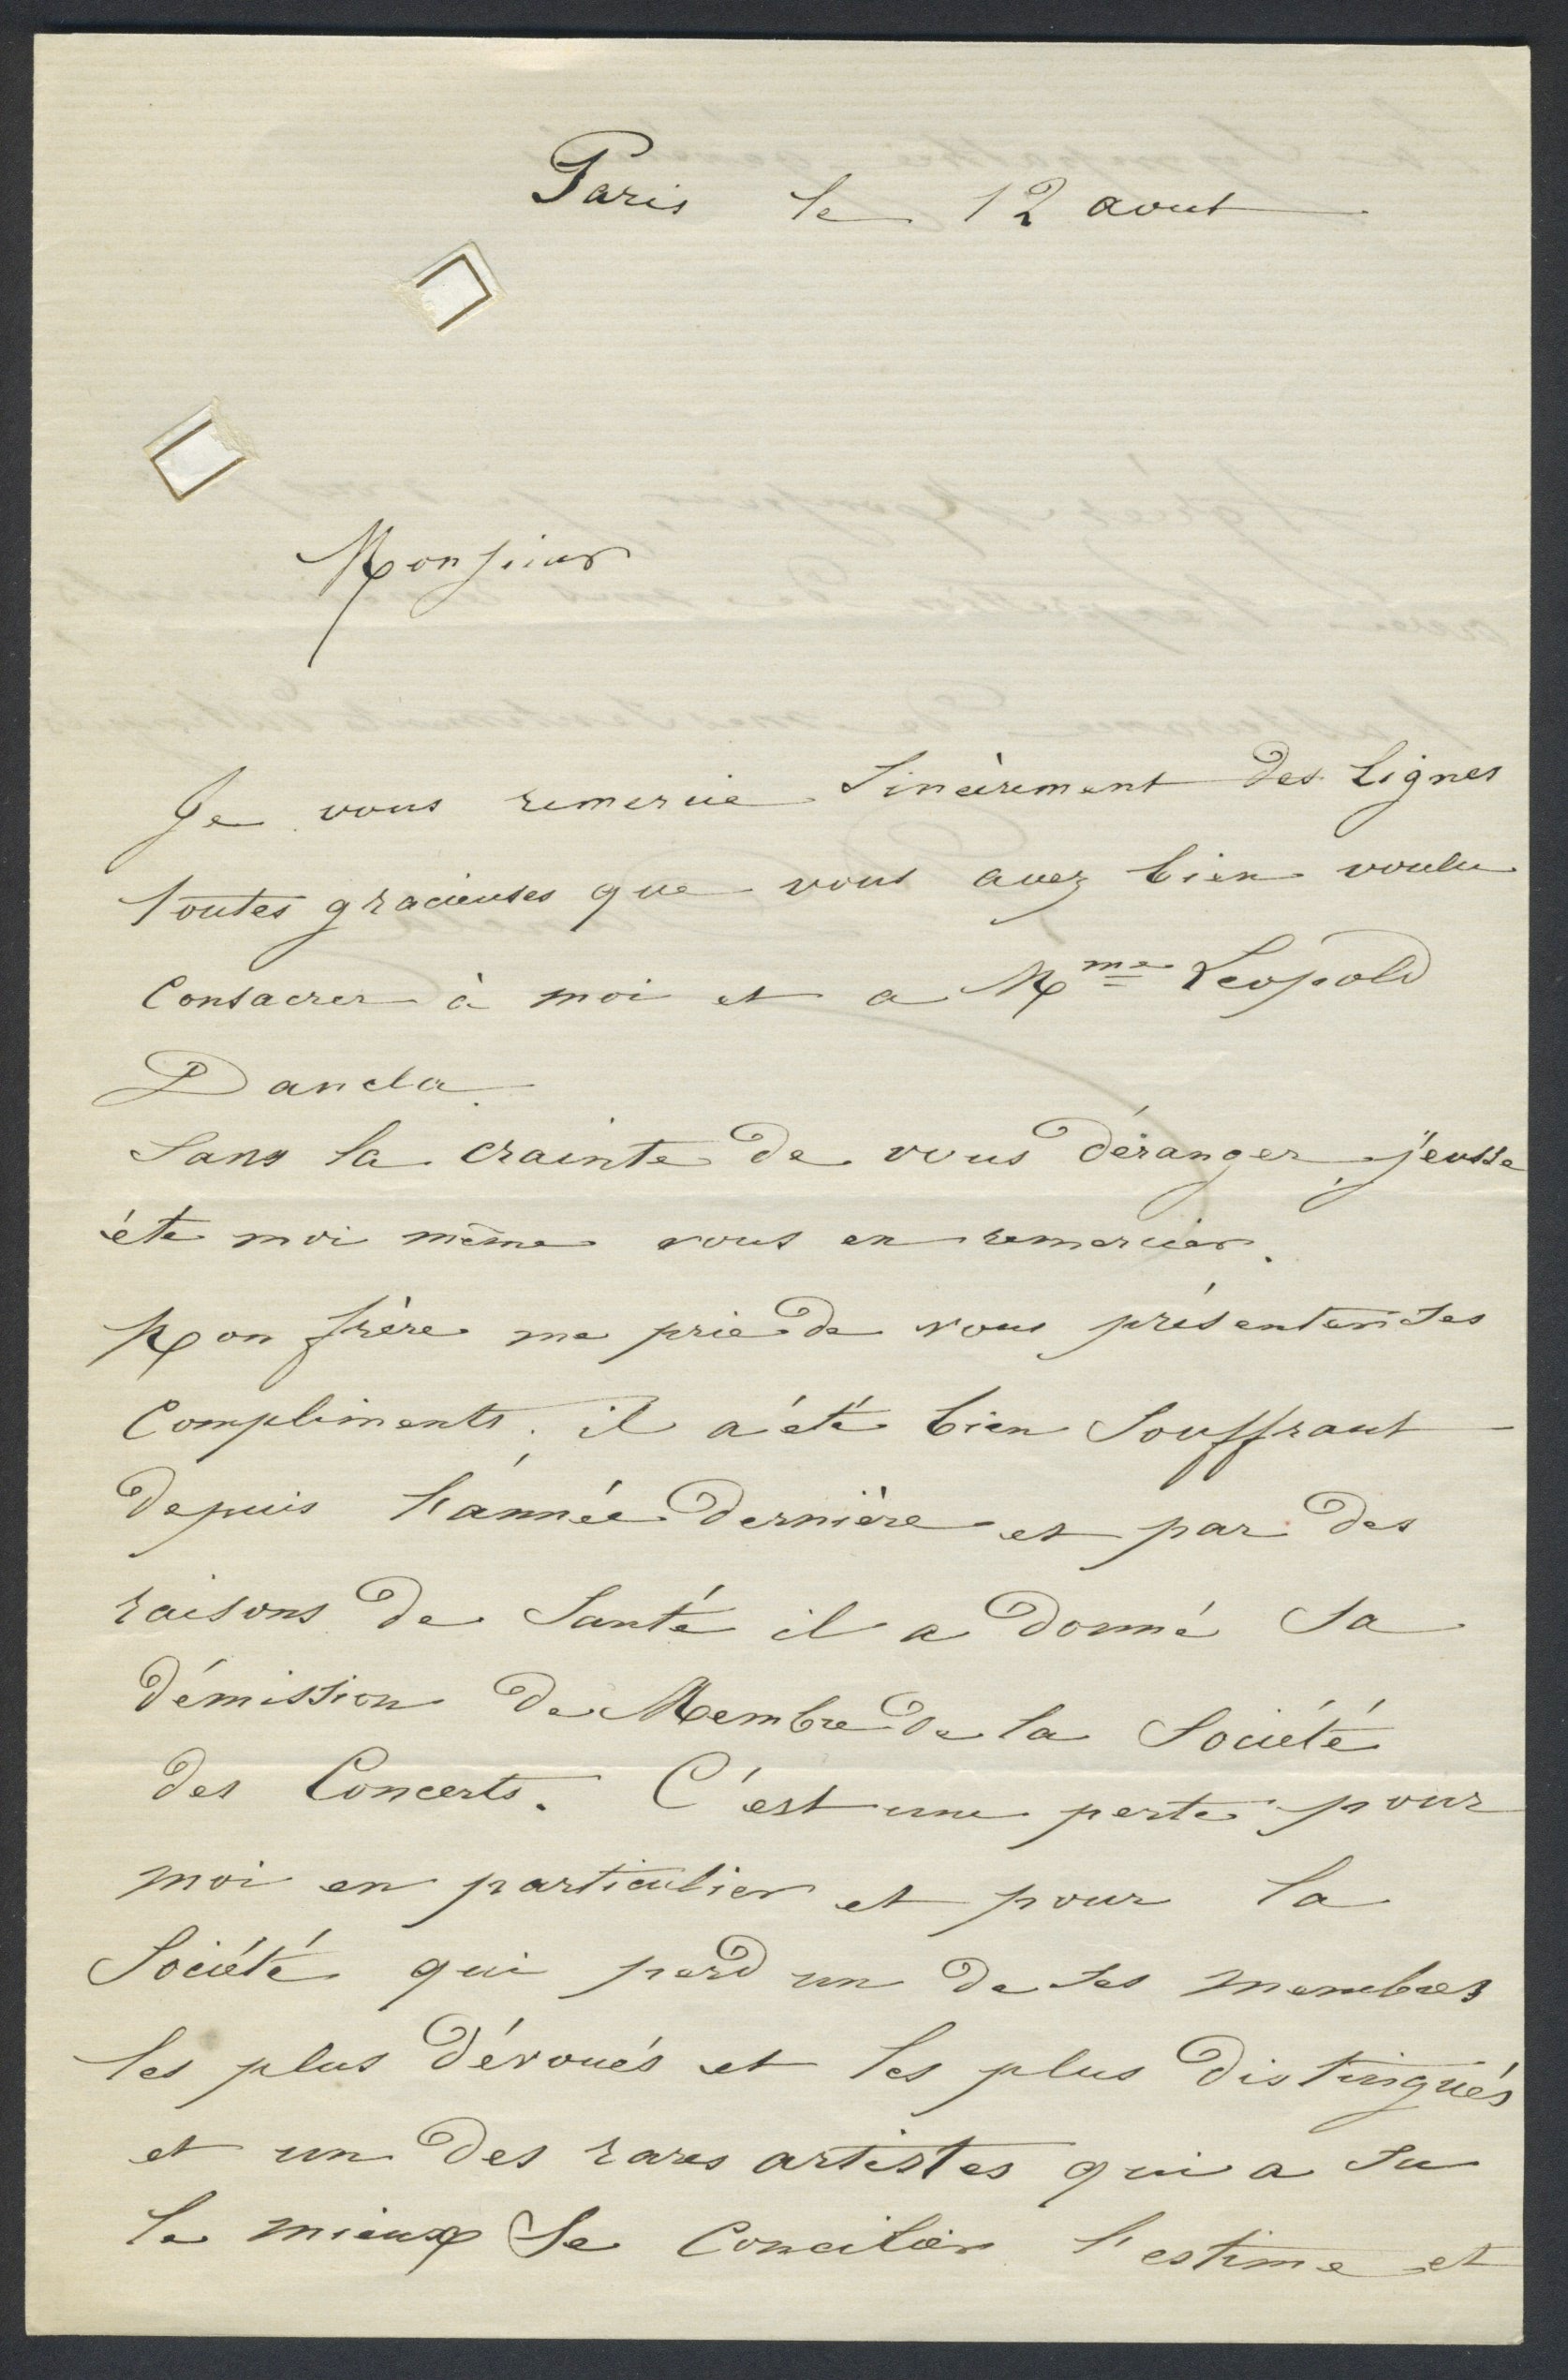 Paris le 12 aout
Monsieur
Je vous remercie sincèrement des lignes
toutes gracieuses que vous avez bien voulu
Consacrer à moi et a Mme Léopold
Dancla.
Sans la crainte de vous déranger, j'eusse
été moi même vous en remercier.
Mon frère me prie de vous présenter ses
Compliments; il a été bien Souffrant
depuis l'année dernière et par des
raisons de Santé il a donné sa
démission de Membre de la Société
des Concerts. C'est une perte pour
moi en particulier et pour la
Société qui perd un de ses membres
les plus dévoués et les plus distingués
et un des rares artistes qui a su
le mieux Se Concilier l'estime et